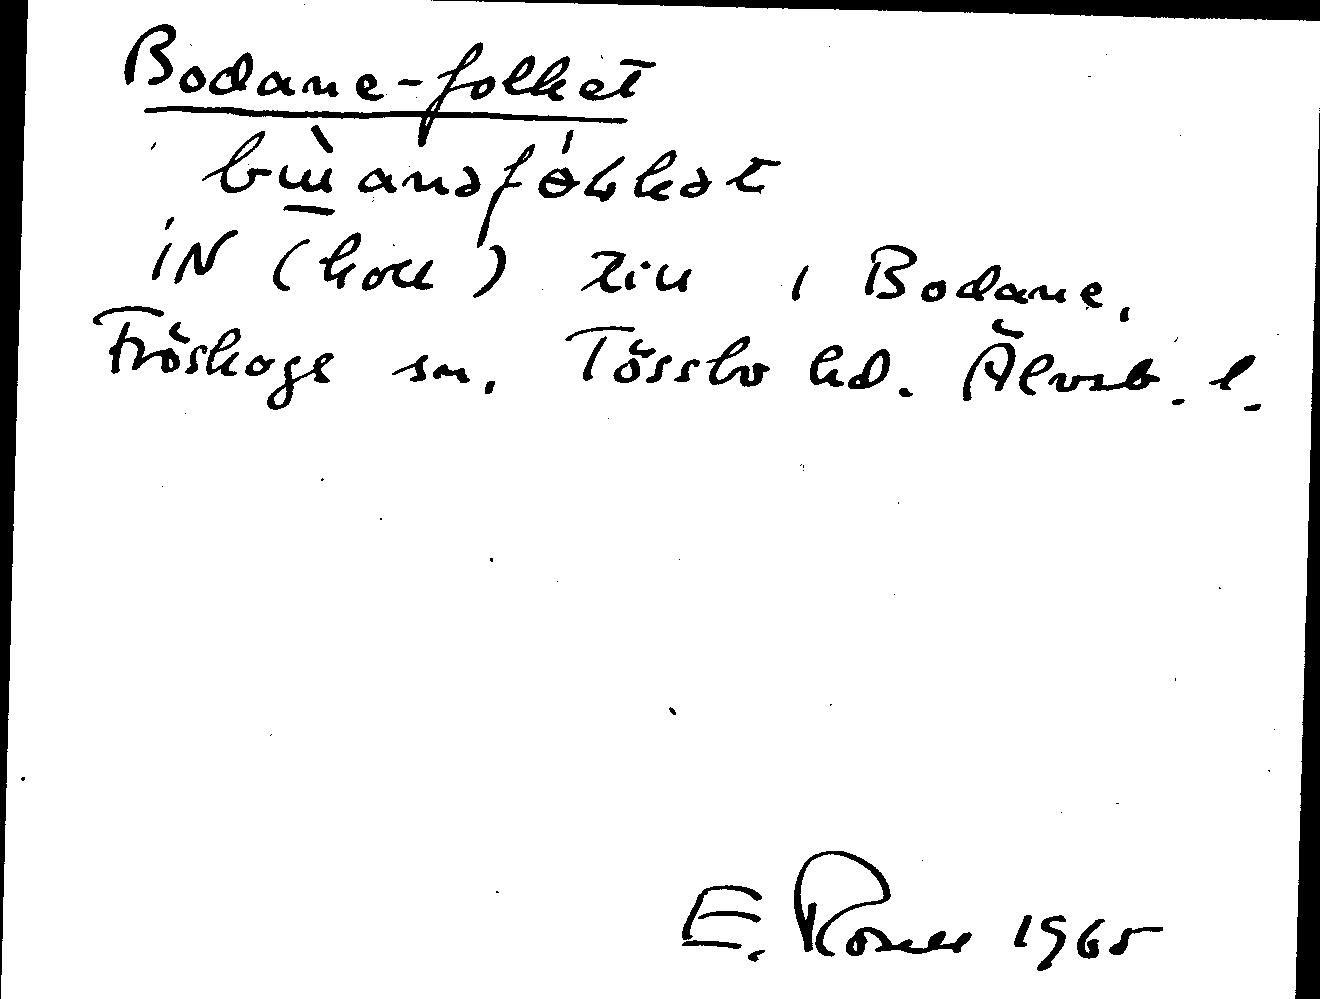 Bodane-folket
iN (koll) till i Bodane,
Fröskogs sn, Tössbo hd. Älvsb. l.
E. Rosell 1965